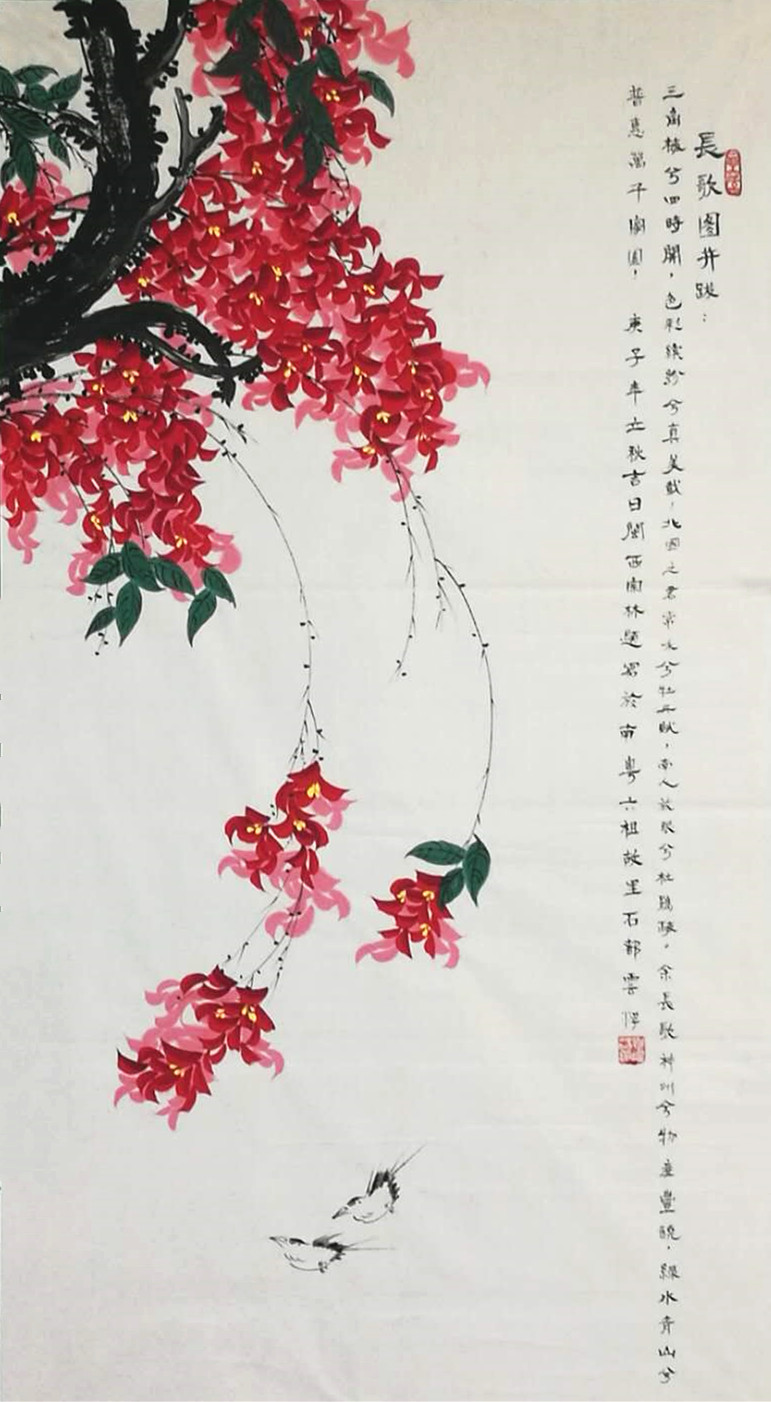 長歌图并跋：
三角梅兮四時開，色彩缤紛兮真美哉，北国之君常咏兮牡丹賦，南人放眼兮杜鵑陂。余長歌神州兮物產豐饒，綠水青山兮
普惠萬千家園！ 庚子年立秋吉日閩西南林題寫於南粤六祖故里石都雲浮